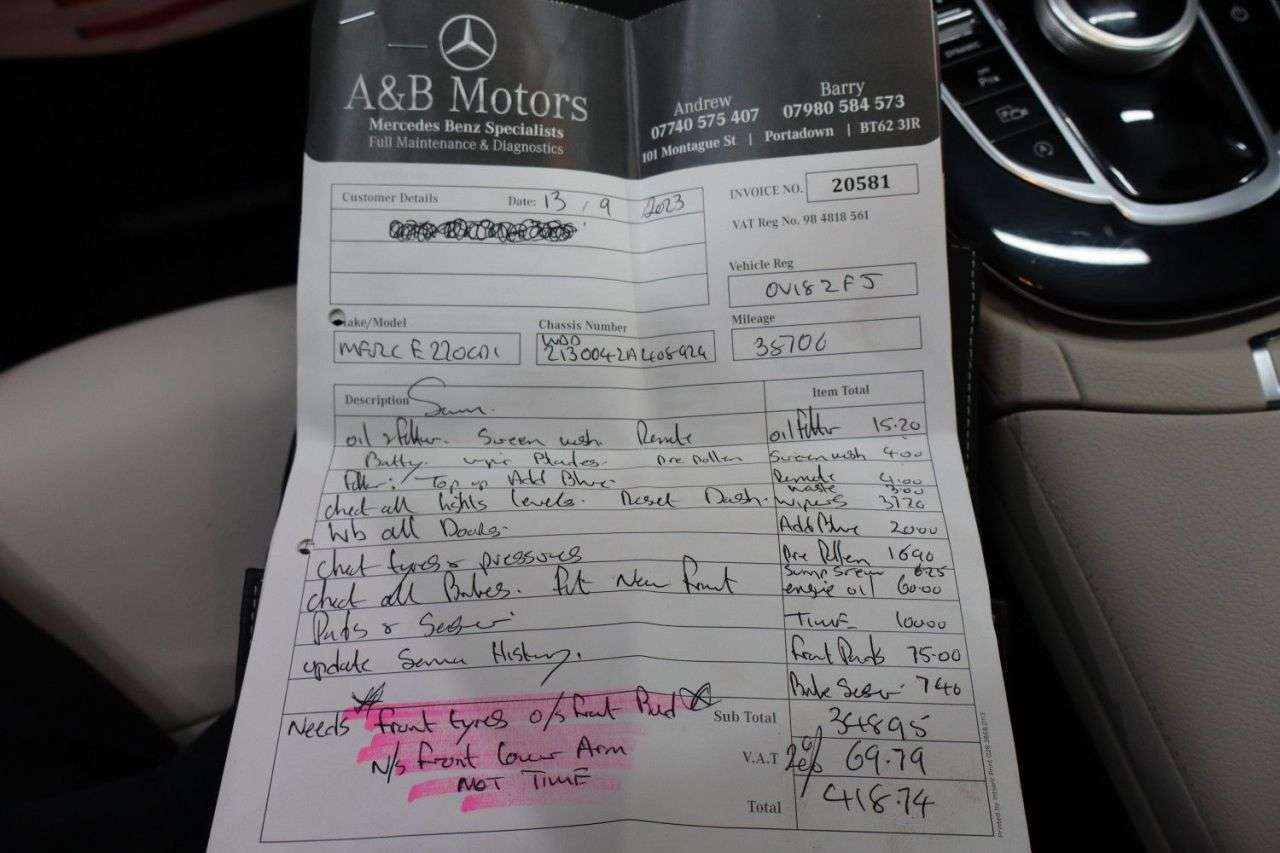 A&B Motors
Mercedes Benz Specialists
Full Maintenance & Diagnostics
Andrew
07740 575 407
Barry
07980 584 573
101 Montague St | Portadown | BT62 3JR
Customer Details Date: 13 / 9 2023
INVOICE NO. 20581
VAT Reg No. 98 4818 561
Vehicle Reg
OV18 2FJ
Make/Model
MERC E220CDI
Chassis Number
WDD
2130042A408924
Mileage
38706
Description Item Total
oil & filter. Screen wash Remote oil filter 15.20
wiper Blades Pollen Screen wash 4.00
filter; Top up Add Blue Remote 4.00
waste 3.00
check all lights levels. Reset Dash. wipers 31.20
all Doors. Add Blue 20.00
check tyres & pressures Pollen 16.90
Sump Screw 6.25
check all Brakes. Fit New front engine oil 60.00
Pads & Sensor TIME 100.00
update Service History. Front Pads 75.00
Brake Sensor 7.40
Needs front tyres o/s front Sub Total 348.95
N/s front lower Arm V.A.T 20% 69.79
NOT TIME
Total 418.74